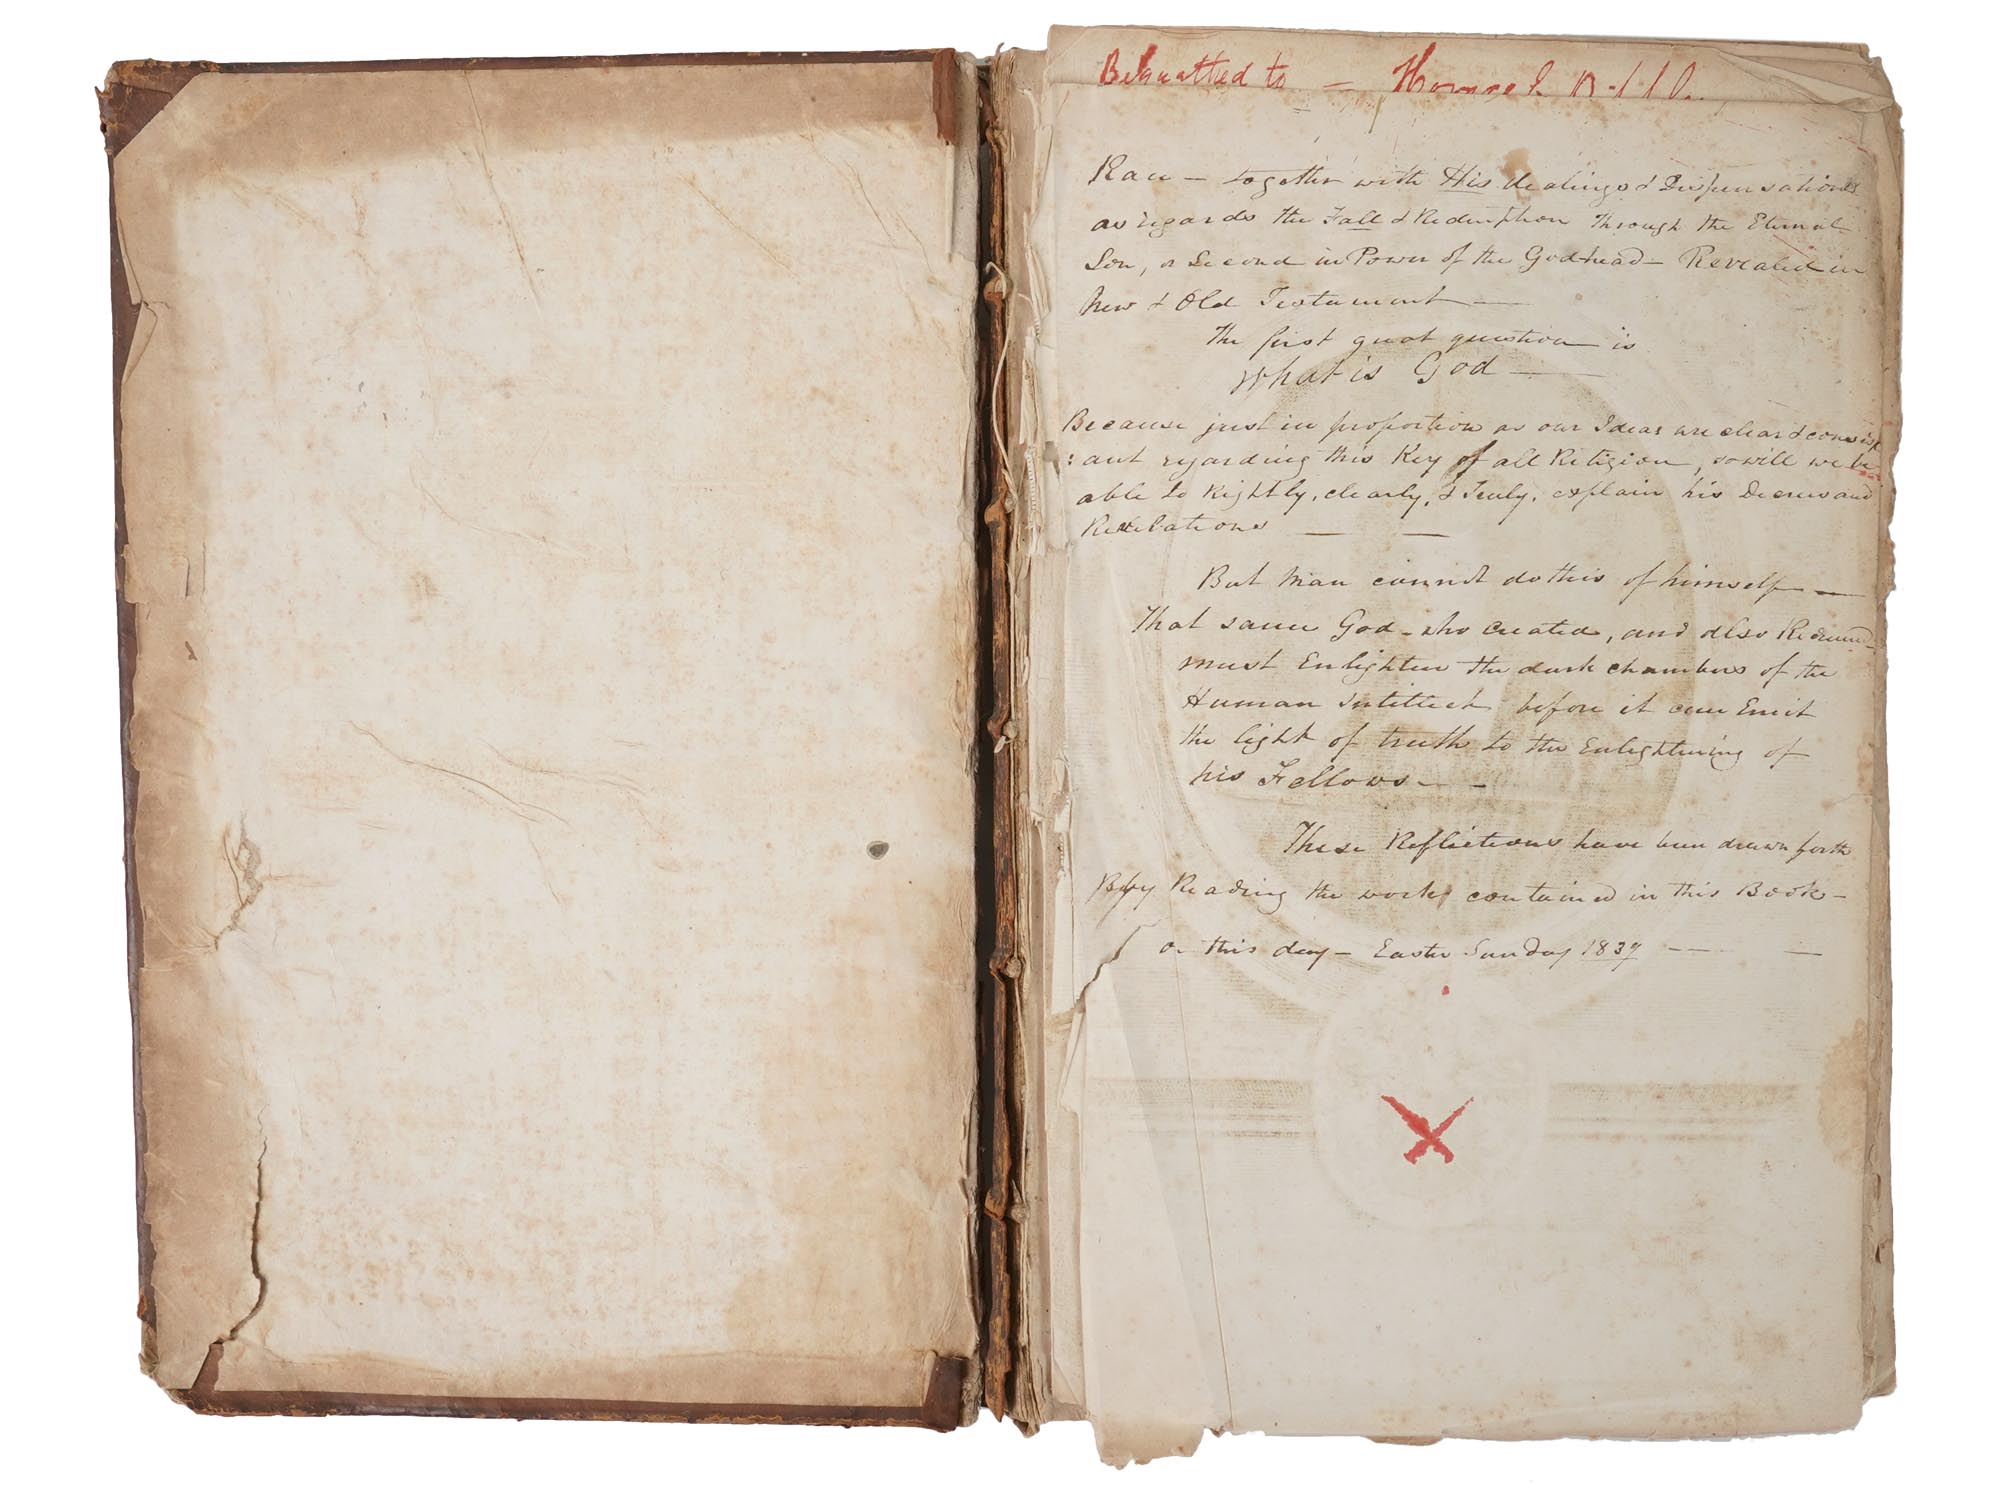 Bequathed to —
Race — together with His dealings & Dispensations
as regards the Fall & Redemption Through the Eternal
Son, or Second in Power of the Godhead — Revealed in
New & Old Testament —
The first great question is
What is God —
Because just in proportion as our Ideas are clear &
: ant regarding this Key of all Religion, so will we be
able to Rightly, clearly, & Truly, explain his Decrees and
Revelations — —
But Man cannot do this of himself —
That same God – who created, and also Redeemed –
must Enlighten the dark chambers of the
Human Intellect before it can Emit
the light of truth to the Enlightening of
his Fellows — –
These Reflections have been drawn forth
By Reading the work contained in this Book –
on this day – Easter Sunday 1839 — —